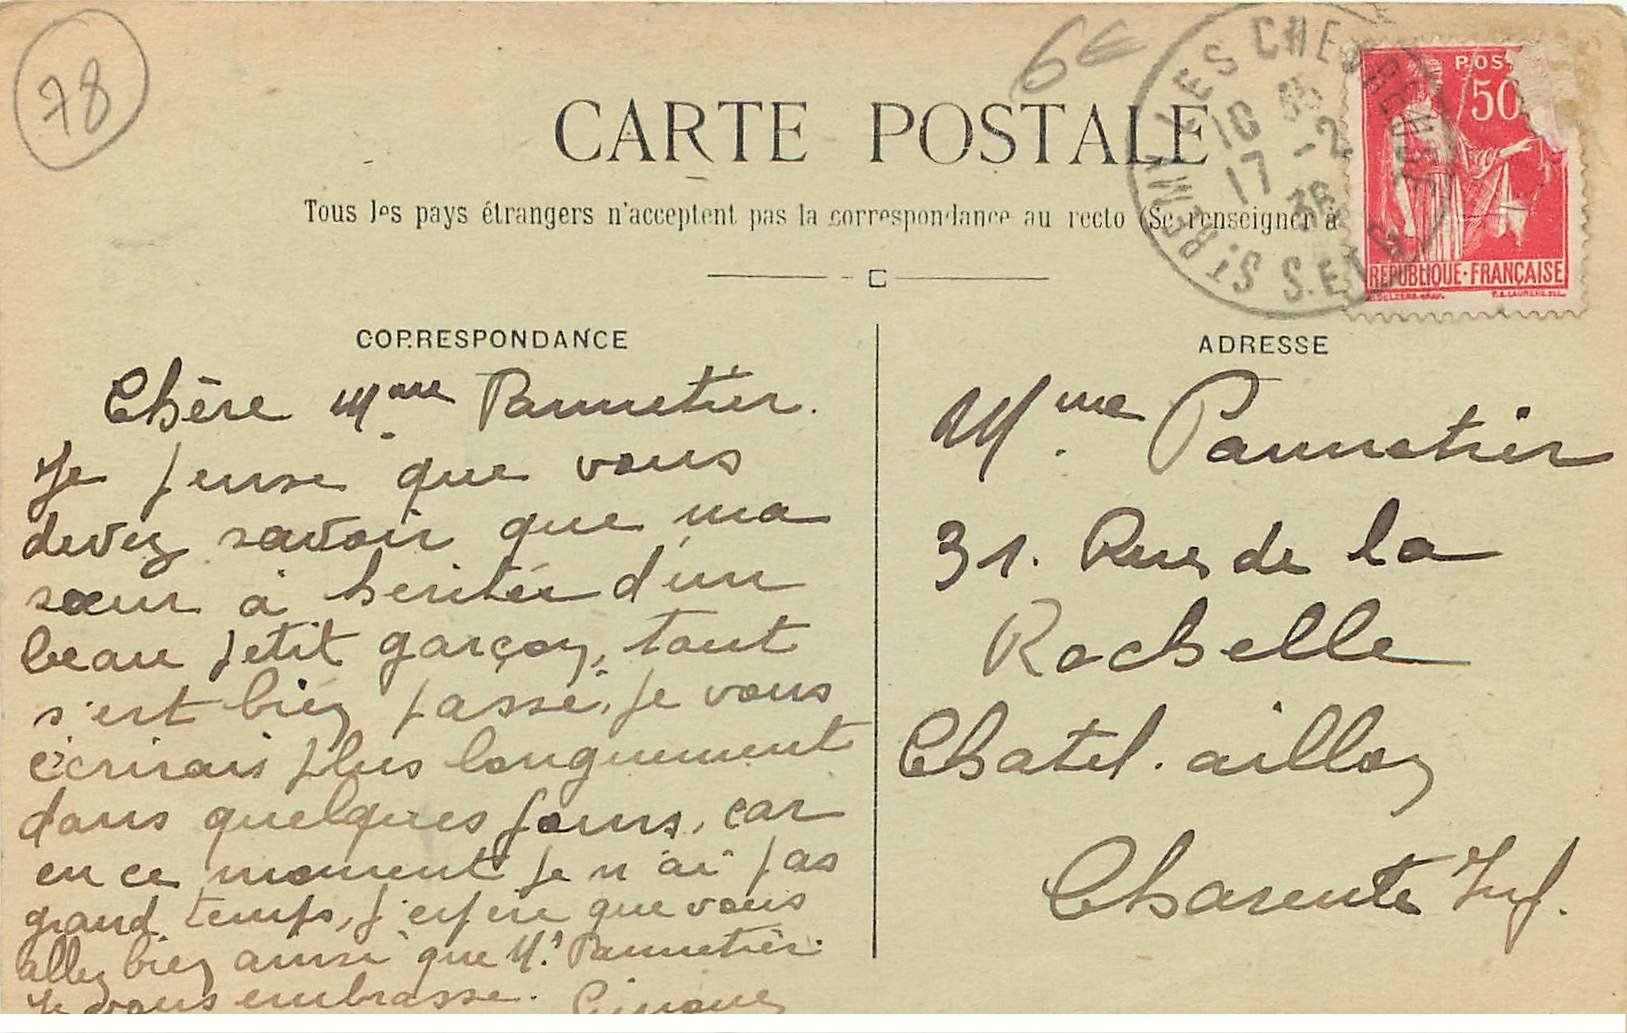 78
6€
CARTE POSTALE
Tous les pays étrangers n'acceptent pas la correspondance au recto (Se renseigner à
ST REMY LES CHEVREUSE
S. ET O.
10 35
17 -2
36
POS
50
REPUBLIQUE·FRANÇAISE
CORRESPONDANCE
Chère Mme Pannetier.
Je pense que vous
devez savoir que ma
sœur à heritée d'un
beau petit garçon, tout
s'est bien passé, je vous
écrirais plus longuement
dans quelques jours, car
en ce moment je n'ai pas
grand temps, j'espère que vous
allez bien ainsi que Mr Pannetier.
Je vous embrasse.
ADRESSE
Mme Pannetier
31. Rue de la
Rochelle
Chatel.aillon
Charente Inf.